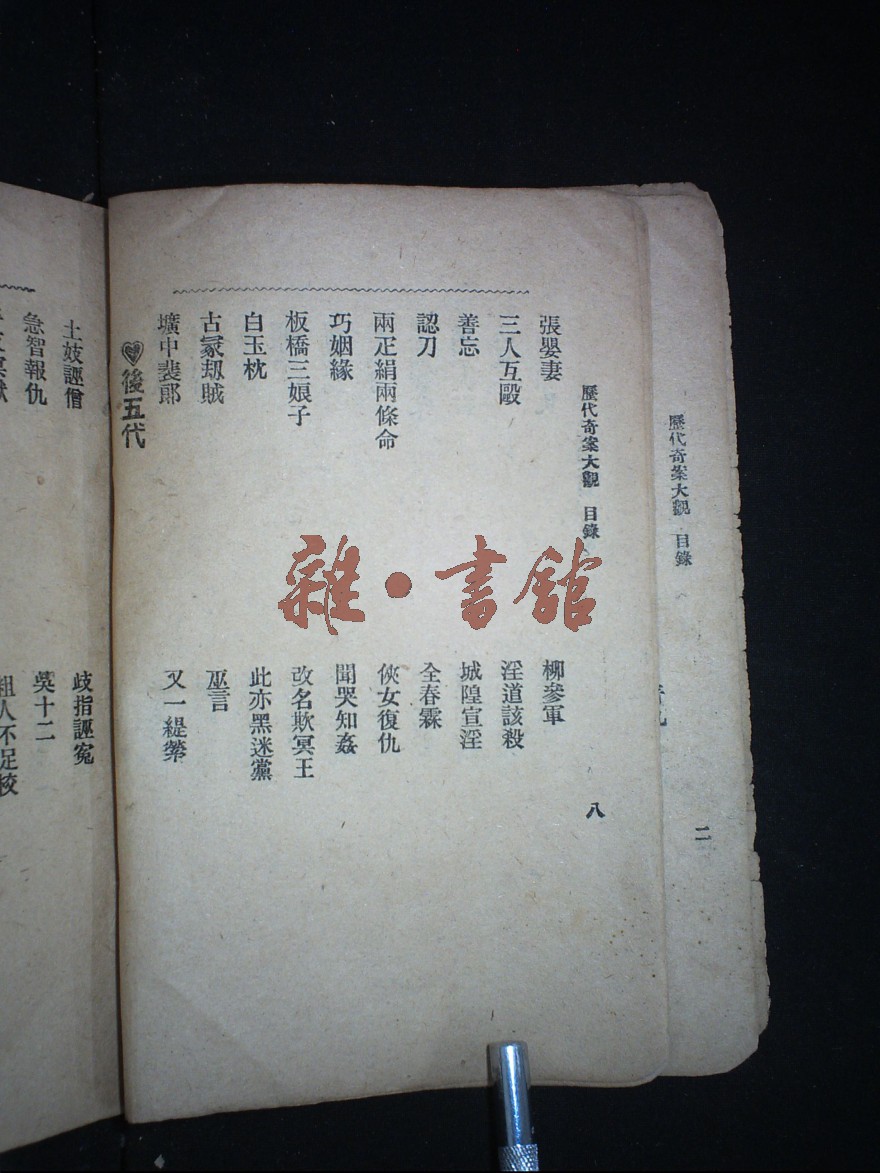 歷代奇案大觀 目錄
二
歷代奇案大觀 目錄
八
張嬰妻
柳參軍
三人互毆
淫道該殺
善忘
城隍宣淫
認刀
全春霖
兩疋絹兩條命
俠女復仇
巧姻緣
聞哭知姦
板橋三娘子
改名欺冥王
白玉枕
此亦黑迷黨
古冢刼賊
巫言
壙中裴郎
又一緹縈
後五代
土妓誣僧
歧指誣寃
急智報仇
吳十二
粗人不足校
雜·書館